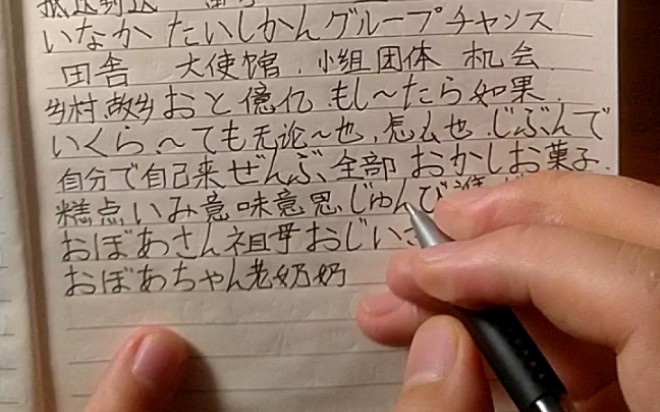 いなか たいしかん グループ チャンス
田舎 大使館 小组 团体 机会
乡村 故乡 おと 億 亿 もし〜たら 如果
いくら、〜ても 无论〜也、怎么也 じぶんで
自分で 自己来 ぜんぶ 全部 おかし お菓子
糕点 いみ 意味 意思 じゅんび
おぼあさん 祖母 おじい
おぼあちゃん 老奶奶